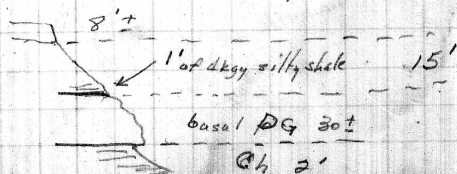 8' ±
1' of dkgy silty shale 15'
basal PG 30±
Ch 2'